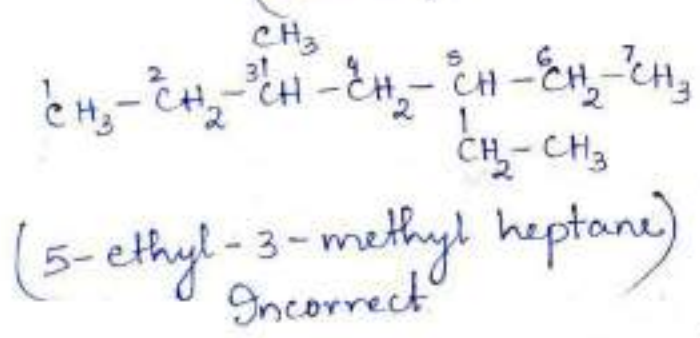 CH3
1CH3 - 2CH2 - 3CH - 4CH2 - 5CH - 6CH2 - 7CH3
CH2 - CH3
(5-ethyl-3-methyl heptane)
Incorrect